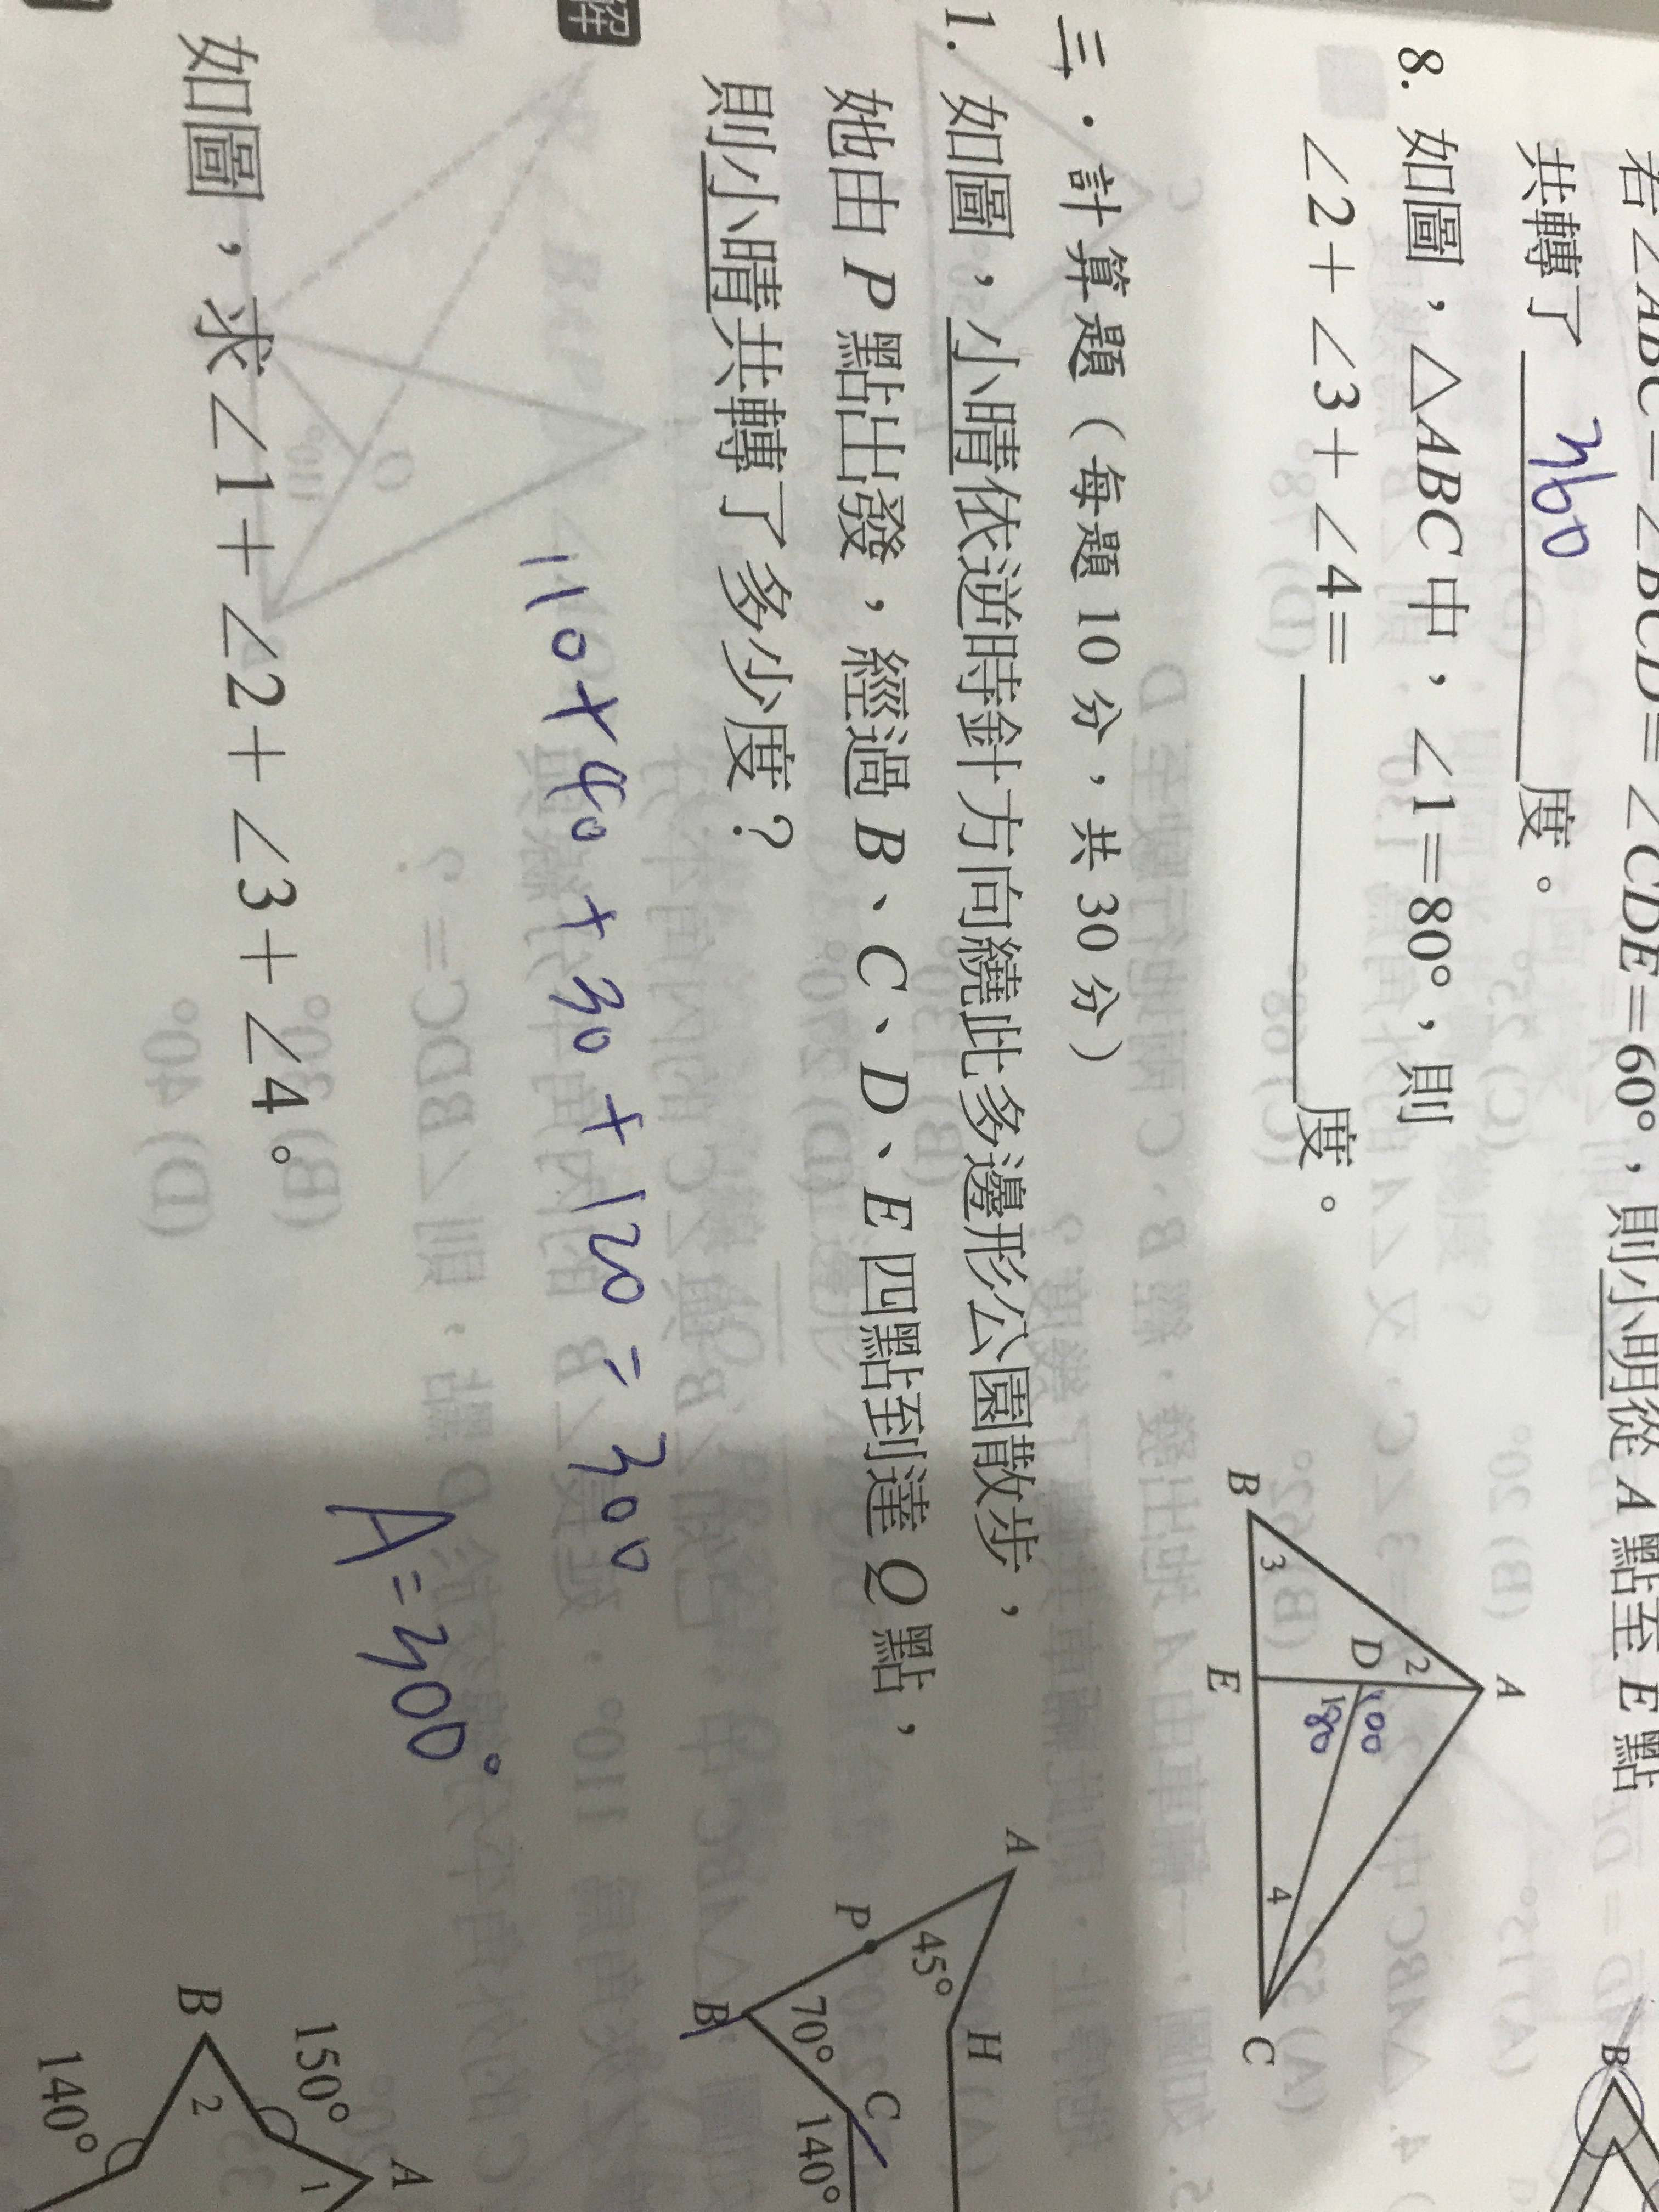 若∠ABC=∠BCD=∠CDE=60°，則小明從 A 點至 E 點
共轉了 360 度。
B
8. 如圖，△ABC 中，∠1=80°，則
∠2+∠3+∠4= 度。
A
2
D
100
1 80
B
3
E
4
C
三、計算題（每題 10 分，共 30 分）
1. 如圖，小晴依逆時針方向繞此多邊形公園散步，
她由 P 點出發，經過 B、C、D、E 四點到達 Q 點，
則小晴共轉了多少度？
A
45°
H
P
70°
B
C
140°
110+40+30+120=300
A=300°
解
如圖，求∠1+∠2+∠3+∠4。
A
1
150°
B
2
140°